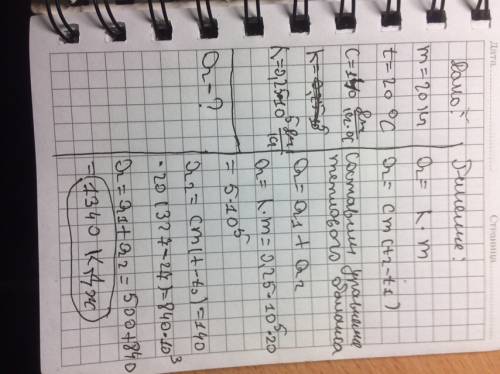 Дано:
m = 20 кг
t = 20 °C
c = 140 Дж/кг·°C
K = 0,25·10⁵ Дж/кг
Q - ?
Решение:
Q = λ · m
Q = cm(t₂ - t₁)
Составим уравнение
теплового баланса
Q = Q₁ + Q₂
Q = λ·m = 0,25·10⁵·20
= 5·10⁵
Q₂ = cm(t - t₁) = 140
·20 (327 - 27) = 840·10³
Q = Q₁ + Q₂ = 500 + 840
= 1340 кДж
Дата
Страница